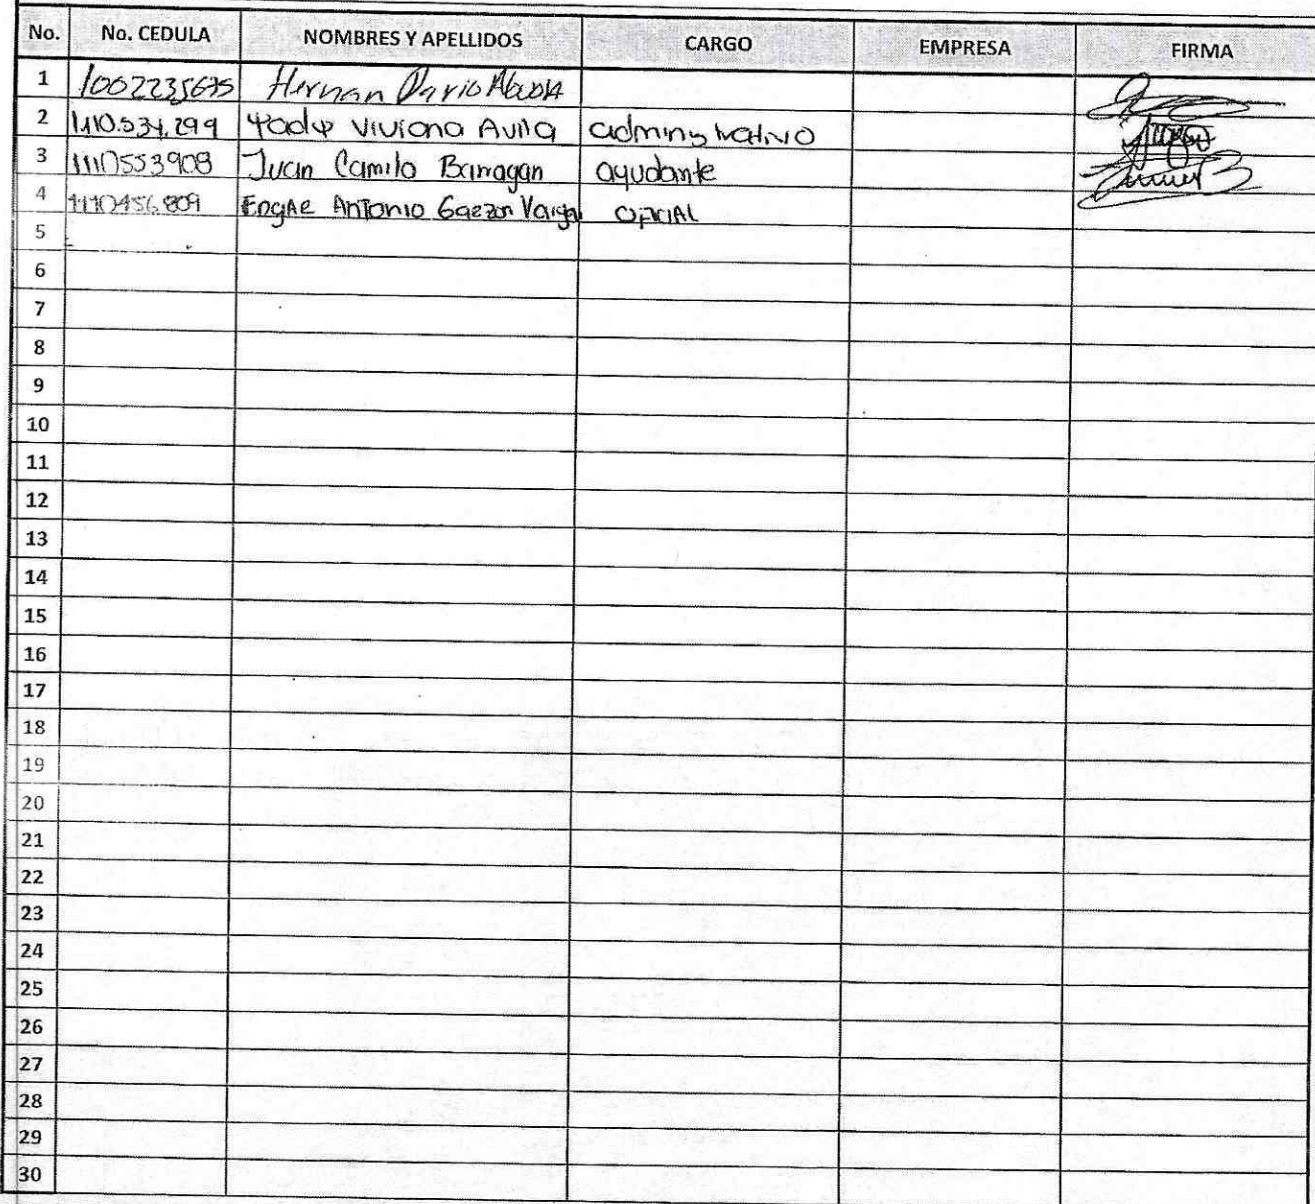 No. No. CEDULA NOMBRES Y APELLIDOS CARGO EMPRESA FIRMA
1 1002235675 Hernan Dario
2 1110.534.299 Yady Viviana Avila administrativo
3 1110553908 Juan Camilo Barragan ayudante
4 1110456809 Edgar Antonio Garzon Vargas oficial
5
6
7
8
9
10
11
12
13
14
15
16
17
18
19
20
21
22
23
24
25
26
27
28
29
30